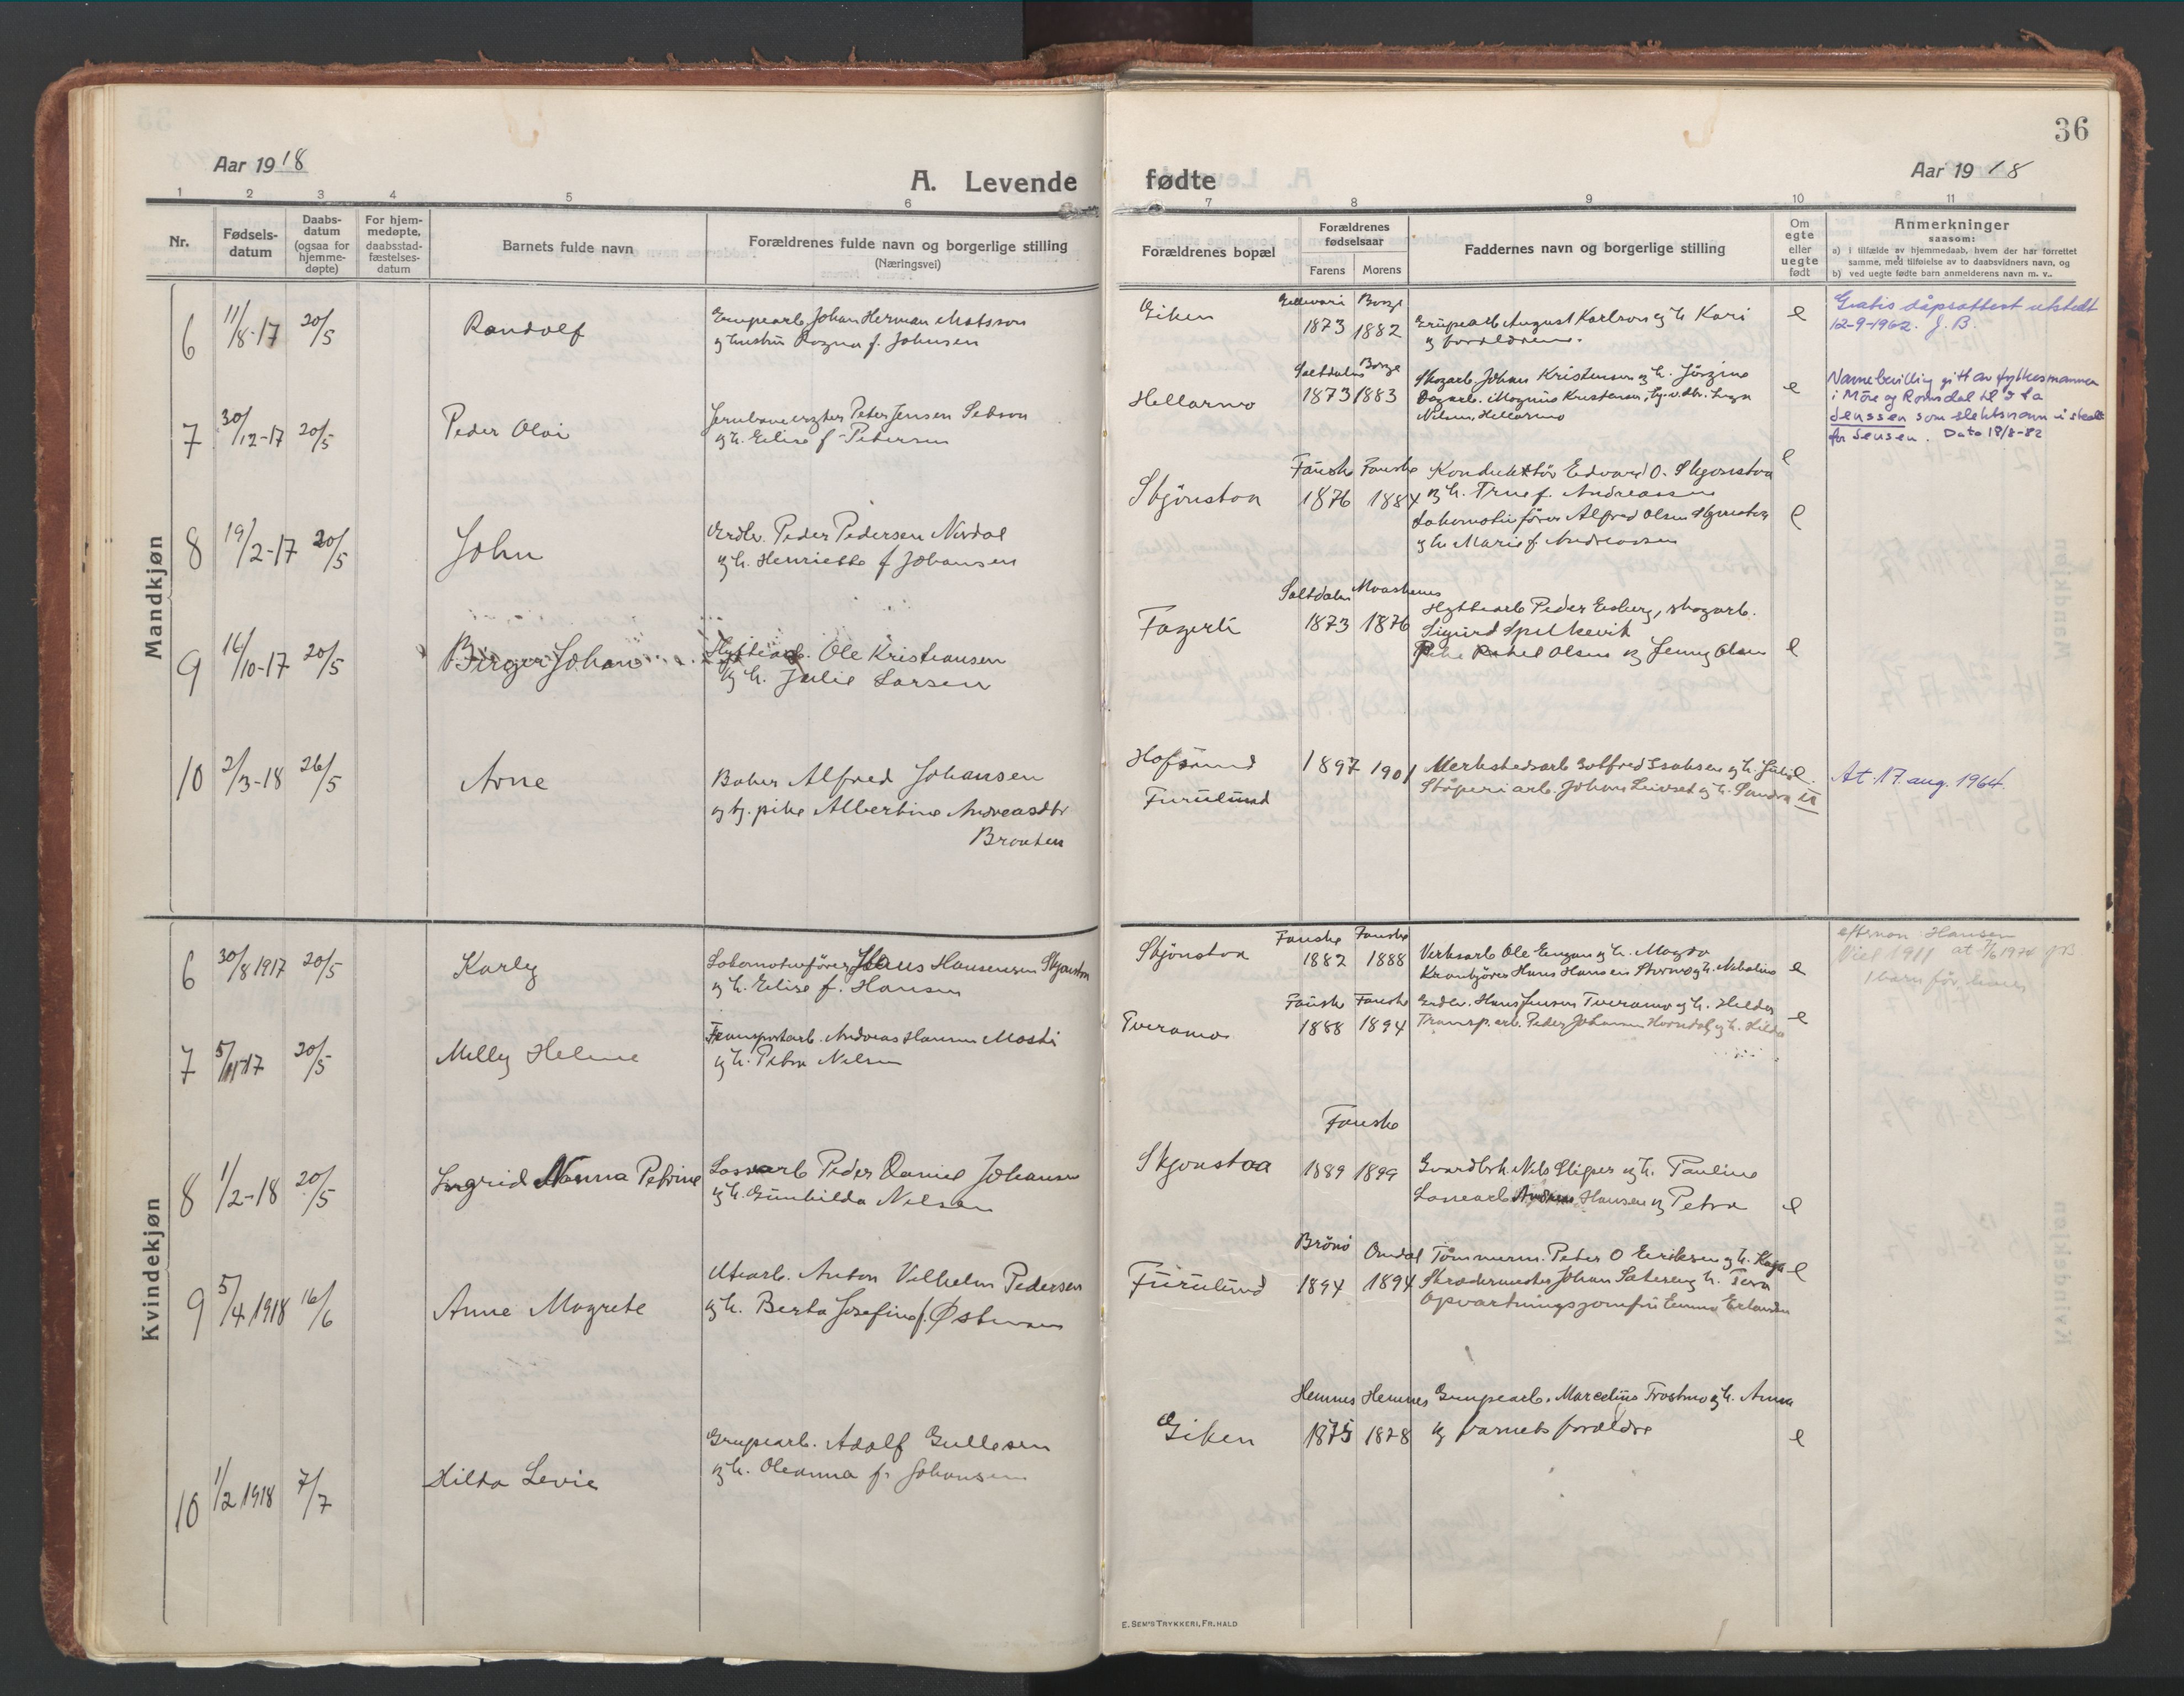 36
Aar 1918
A. Levende
fødte
Aar 1918
1 2 3 4 5 6 7 8 9 10 11
Nr.
Fødsels-
datum
Daabs-
datum
(ogsaa for
hjemme-
døpte)
For hjem-
medøpte,
daabsstad-
fæstelses-
datum
Barnets fulde navn
Forældrenes fulde navn og borgerlige stilling
(Næringsvei)
Forældrenes bopæl
Forældrenes
fødselsaar
Farens Morens
Faddernes navn og borgerlige stilling
Om
egte
eller
uegte
født
Anmerkninger
saasom:
a) i tilfælde av hjemmedaab, hvem der har forrettet
samme, med tilføielse av to daabsvidners navn, og
b) ved uegte fødte barn anmelderens navn m. v..
Mandkjøn
6 11/8-17 20/5 Randolf
Grupearb. Johan Herman Matsson
og hustru Ragna f. Johnsen
Giken
Gellivari Borge
1873 1882
Grupearb August Karlson og h. Kari
og forældrene.
e
Gratis dåpsattest utstedt
12-9-1962. J. B.
7 30/12-17 20/5 Peder Olai
Peter Jensen
og h. Elise f. Petersen
Hellarmo
Saltdalen Borge
1873 1883
Skogarb. Johan Kristensen og h. Jörgine
Dagarb. Magnus Kristensen,
Nilsen, Hellarmo
e
Navnebevilling gitt av fylkesmannen
i Möre og Romsdal til å ta
Jenssen som slektsnavn i stedet
for Jensen. Dato 18/8-82
8 19/2-17 20/5 John
Peder Pedersen Nordal
og h. Henriette f Johansen
Skjönstaa
Fauske Fauske
1876 1884
Konduktör Edvard O. Skjonstaa
og h. Trine f. Andreassen
Lokomotivförer Alfred Olsen Skjonstaa
og h. Marie f. Andreassen
e
e
9 16/10-17 20/5 Birger Johan
Hyttearb. Ole Kristiansen
og h. Julie Larsen
Fagerli
Saltdalen
1873 1876
Hyttearb Peder Esberg, skogarb.
Sigurd Spilkevik
Pike Rakel Olsen og Jenny Olsen
e
10 2/3-18 26/5 Arne
Baker Alfred Johansen
og tj. pike Albertine Andreasdtr
Braaten
Hofsund
Furulund
1897 1901
Merkstedsarb Gotfred Isaksen og h.
Støperiarb. Johan Leivset og h. Sandra
u
At. 17. aug. 1964.
Kvindekjøn
6 30/8 1917 20/5 Karly
Lokomotivförer Hans Hansen Skjonstaa
og h. Elise f. Hansen
Skjönstaa
Fauske Fauske
1882 1888
Verksarb Ole Engan og h. Magda
Krankjörer Hans Hansen og h.
e
efternavn Hansen
Viet 1911 at 7/6 1974 JB
1 barn för henne
7 5/11-17 20/5 Milly Helene
Transportarb. Andreas Hansen Mosti
og h. Petra Nilsen
Tveramo
Fauske Fauske
1888 1894
Hans Jensen Tveramo og h. Hilda
Transp. arb. Peder Johansen og h. Hilda
e
8 1/2-18 20/5 Ingrid Nanna Petrine
Lossearb Peder Daniel Johansen
og h. Gunhilda Nilsen
Skjonstaa
Fauske
1889 1899
Nils Sliper og h. Pauline
Lossearb Andreas Hansen og Petra
e
9 5/4 1918 16/6 Anne Magrete
Utearb. Anton Vilhelm Pedersen
og h. Berta Josefine f.
Furulund
Brönö
1894 1894
Tömmerm. Peder O Eriksen og h. Kaja
Skrædermester Johan Sateren og h.
Opvartningsjomfru Emma Erlandsen
e
10 1/2 1918 7/7 Hilda Levie
Grupearb. Adolf Gullesen
og h. Oleanna f. Johansen
Giken
Hemnes Hemnes
1875 1878
Grupearb. Marcelius Trastmo og h. Anna
og barnets forældre
e
E. SEM'S TRYKKERI, FR. HALD